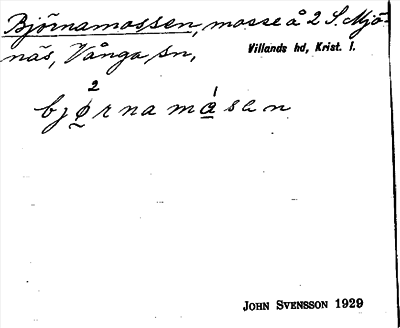 Björnamossen, mosse å 2 S. Mjö-
näs, Vånga sn,
Villands hd, Krist. l.
2 1
bjørnamåsen
JOHN SVENSSON 1929